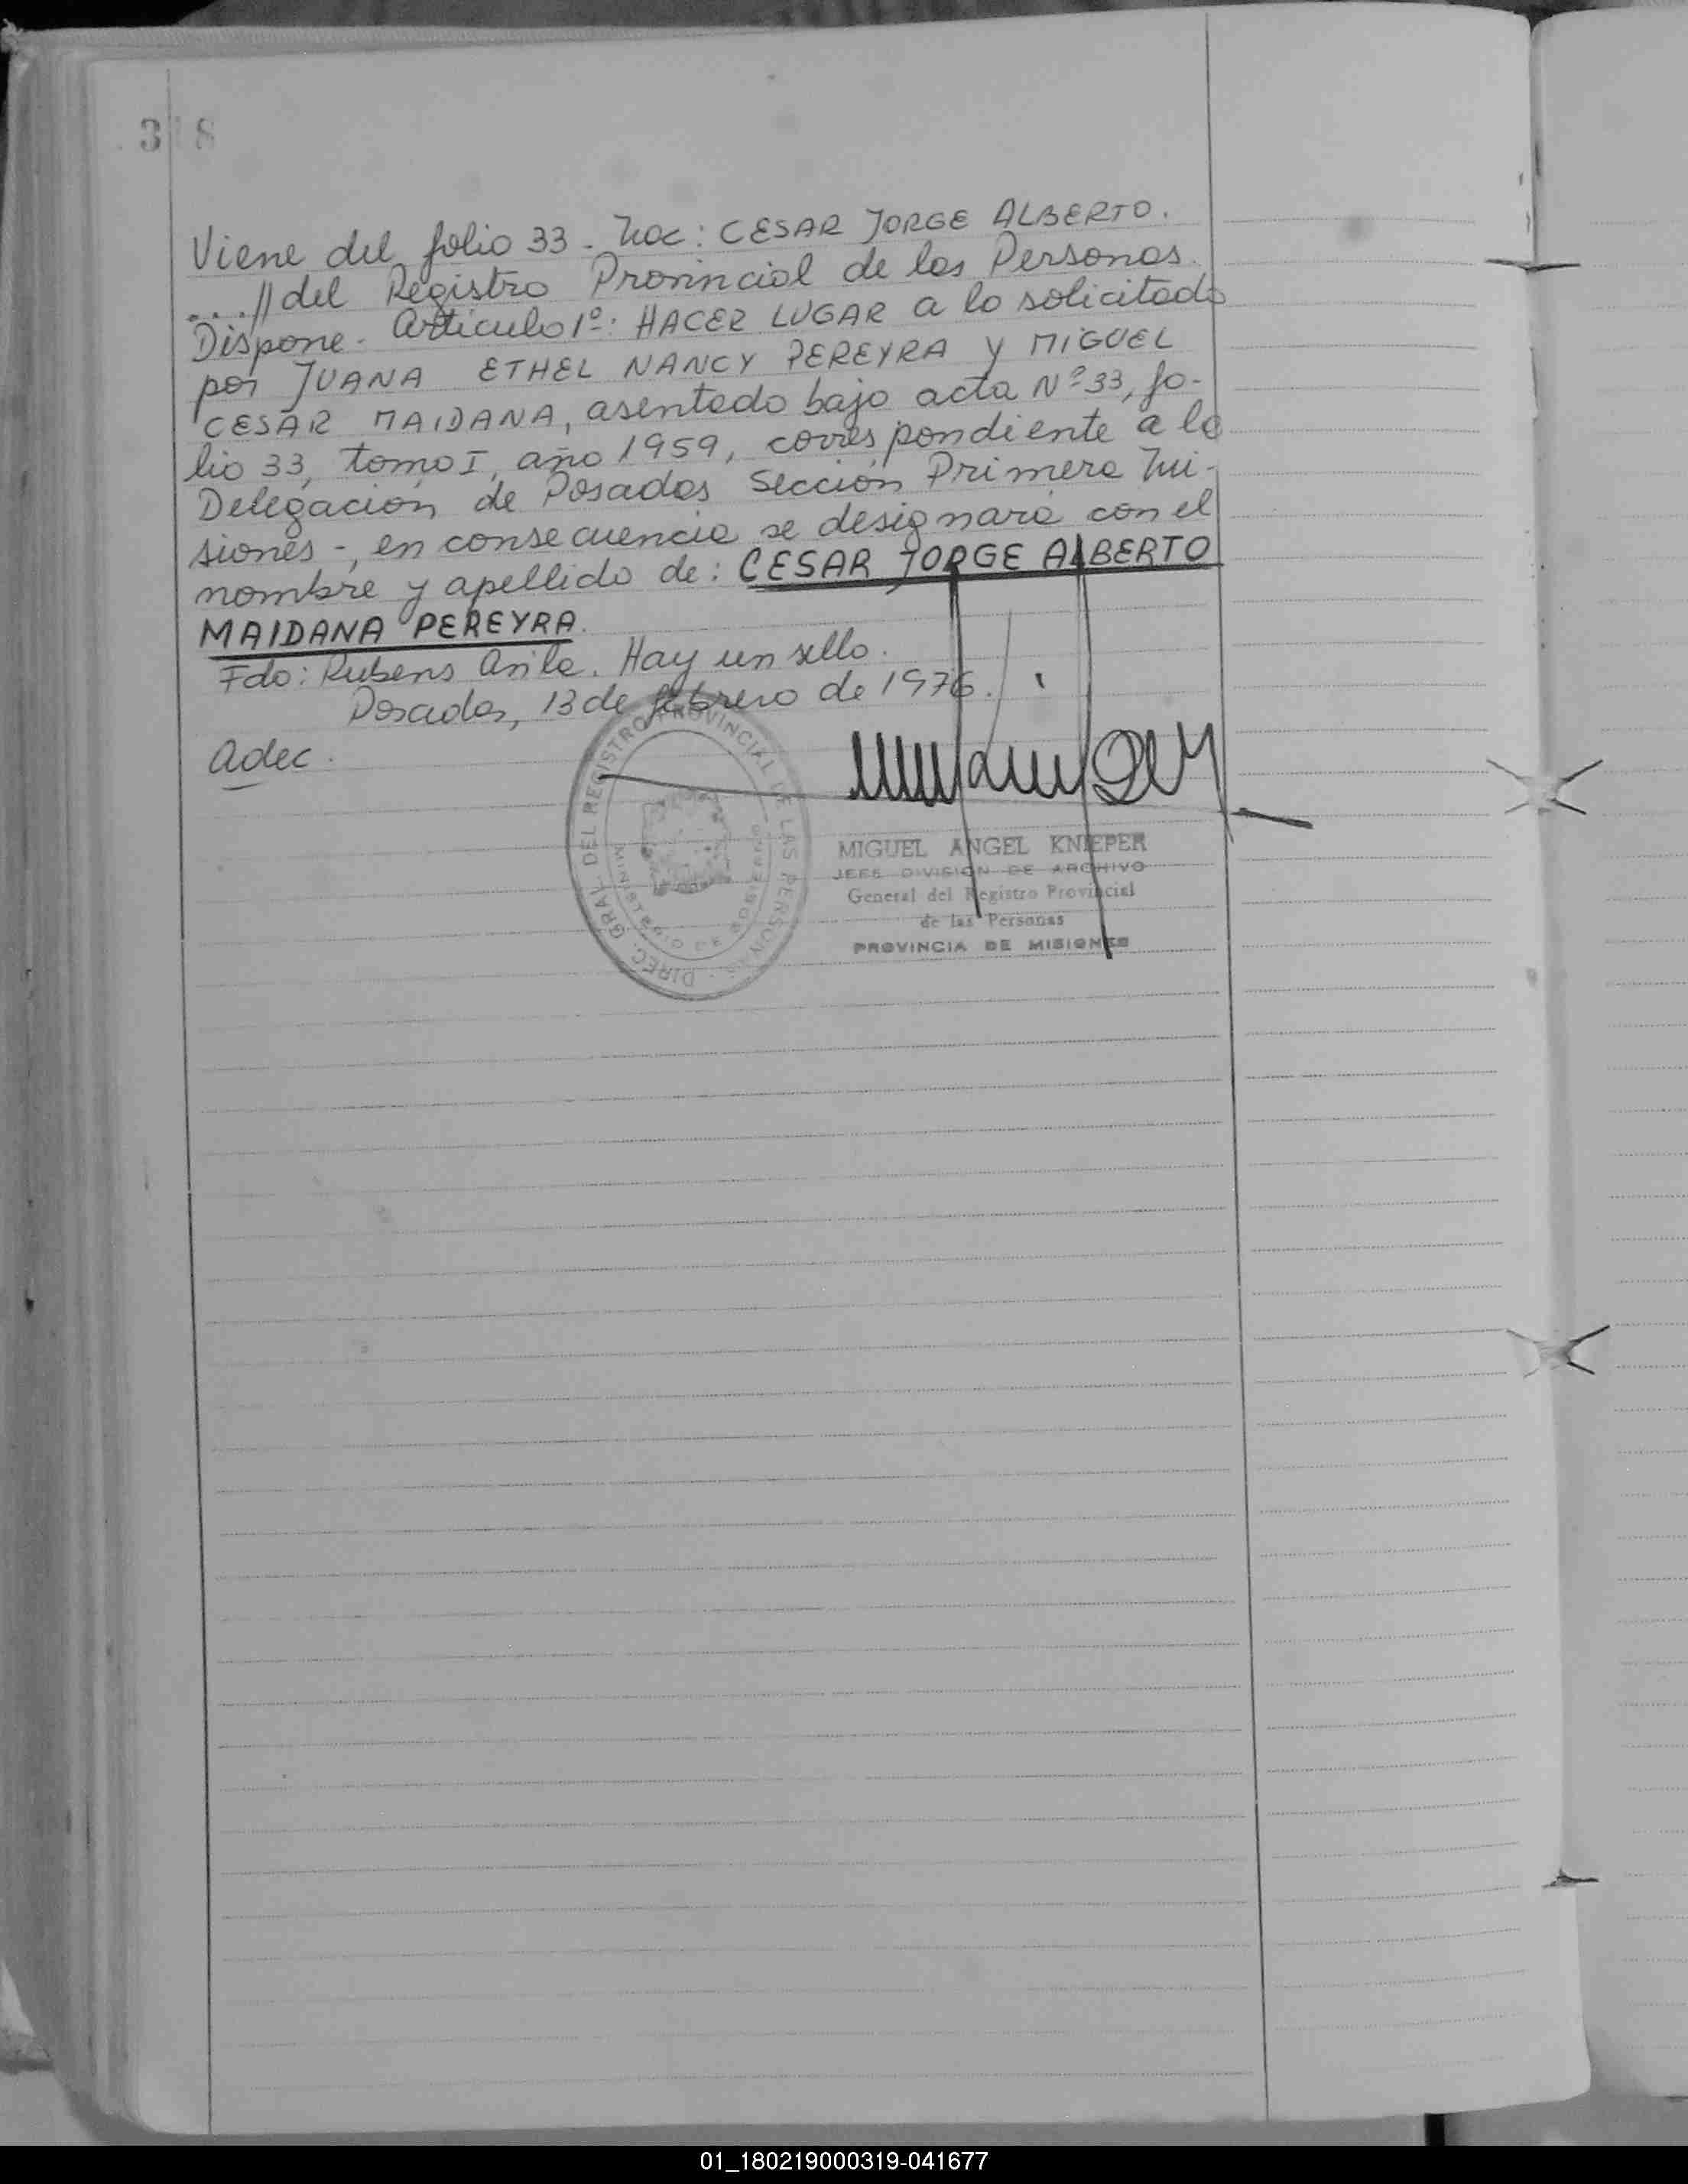 3 8
Viene del folio 33 - Nac: CESAR JORGE ALBERTO.
...// del Registro Provincial de las Personas.
Dispone - Artículo 1º: HACER LUGAR a lo solicitado
por JUANA ETHEL NANCY PEREYRA y MIGUEL
CESAR MAIDANA, asentado bajo acta Nº 33, fo-
lio 33, tomo I, año 1959, correspondiente a la
Delegación de Posadas Sección Primera Mi-
siones -, en consecuencia se designará con el
nombre y apellido de: CESAR JORGE ALBERTO
MAIDANA PEREYRA.
Fdo: Rubens Avila. Hay un sello.
Posadas, 13 de febrero de 1976.
adec.
DIREC. GRAL. DEL REGISTRO PROVINCIAL DE LAS PERSONAS
MINISTERIO DE GOBIERNO
MIGUEL ANGEL KNIEPER
JEFE DIVISION DE ARCHIVO
General del Registro Provincial
de las Personas
PROVINCIA DE MISIONES
01_180219000319-041677